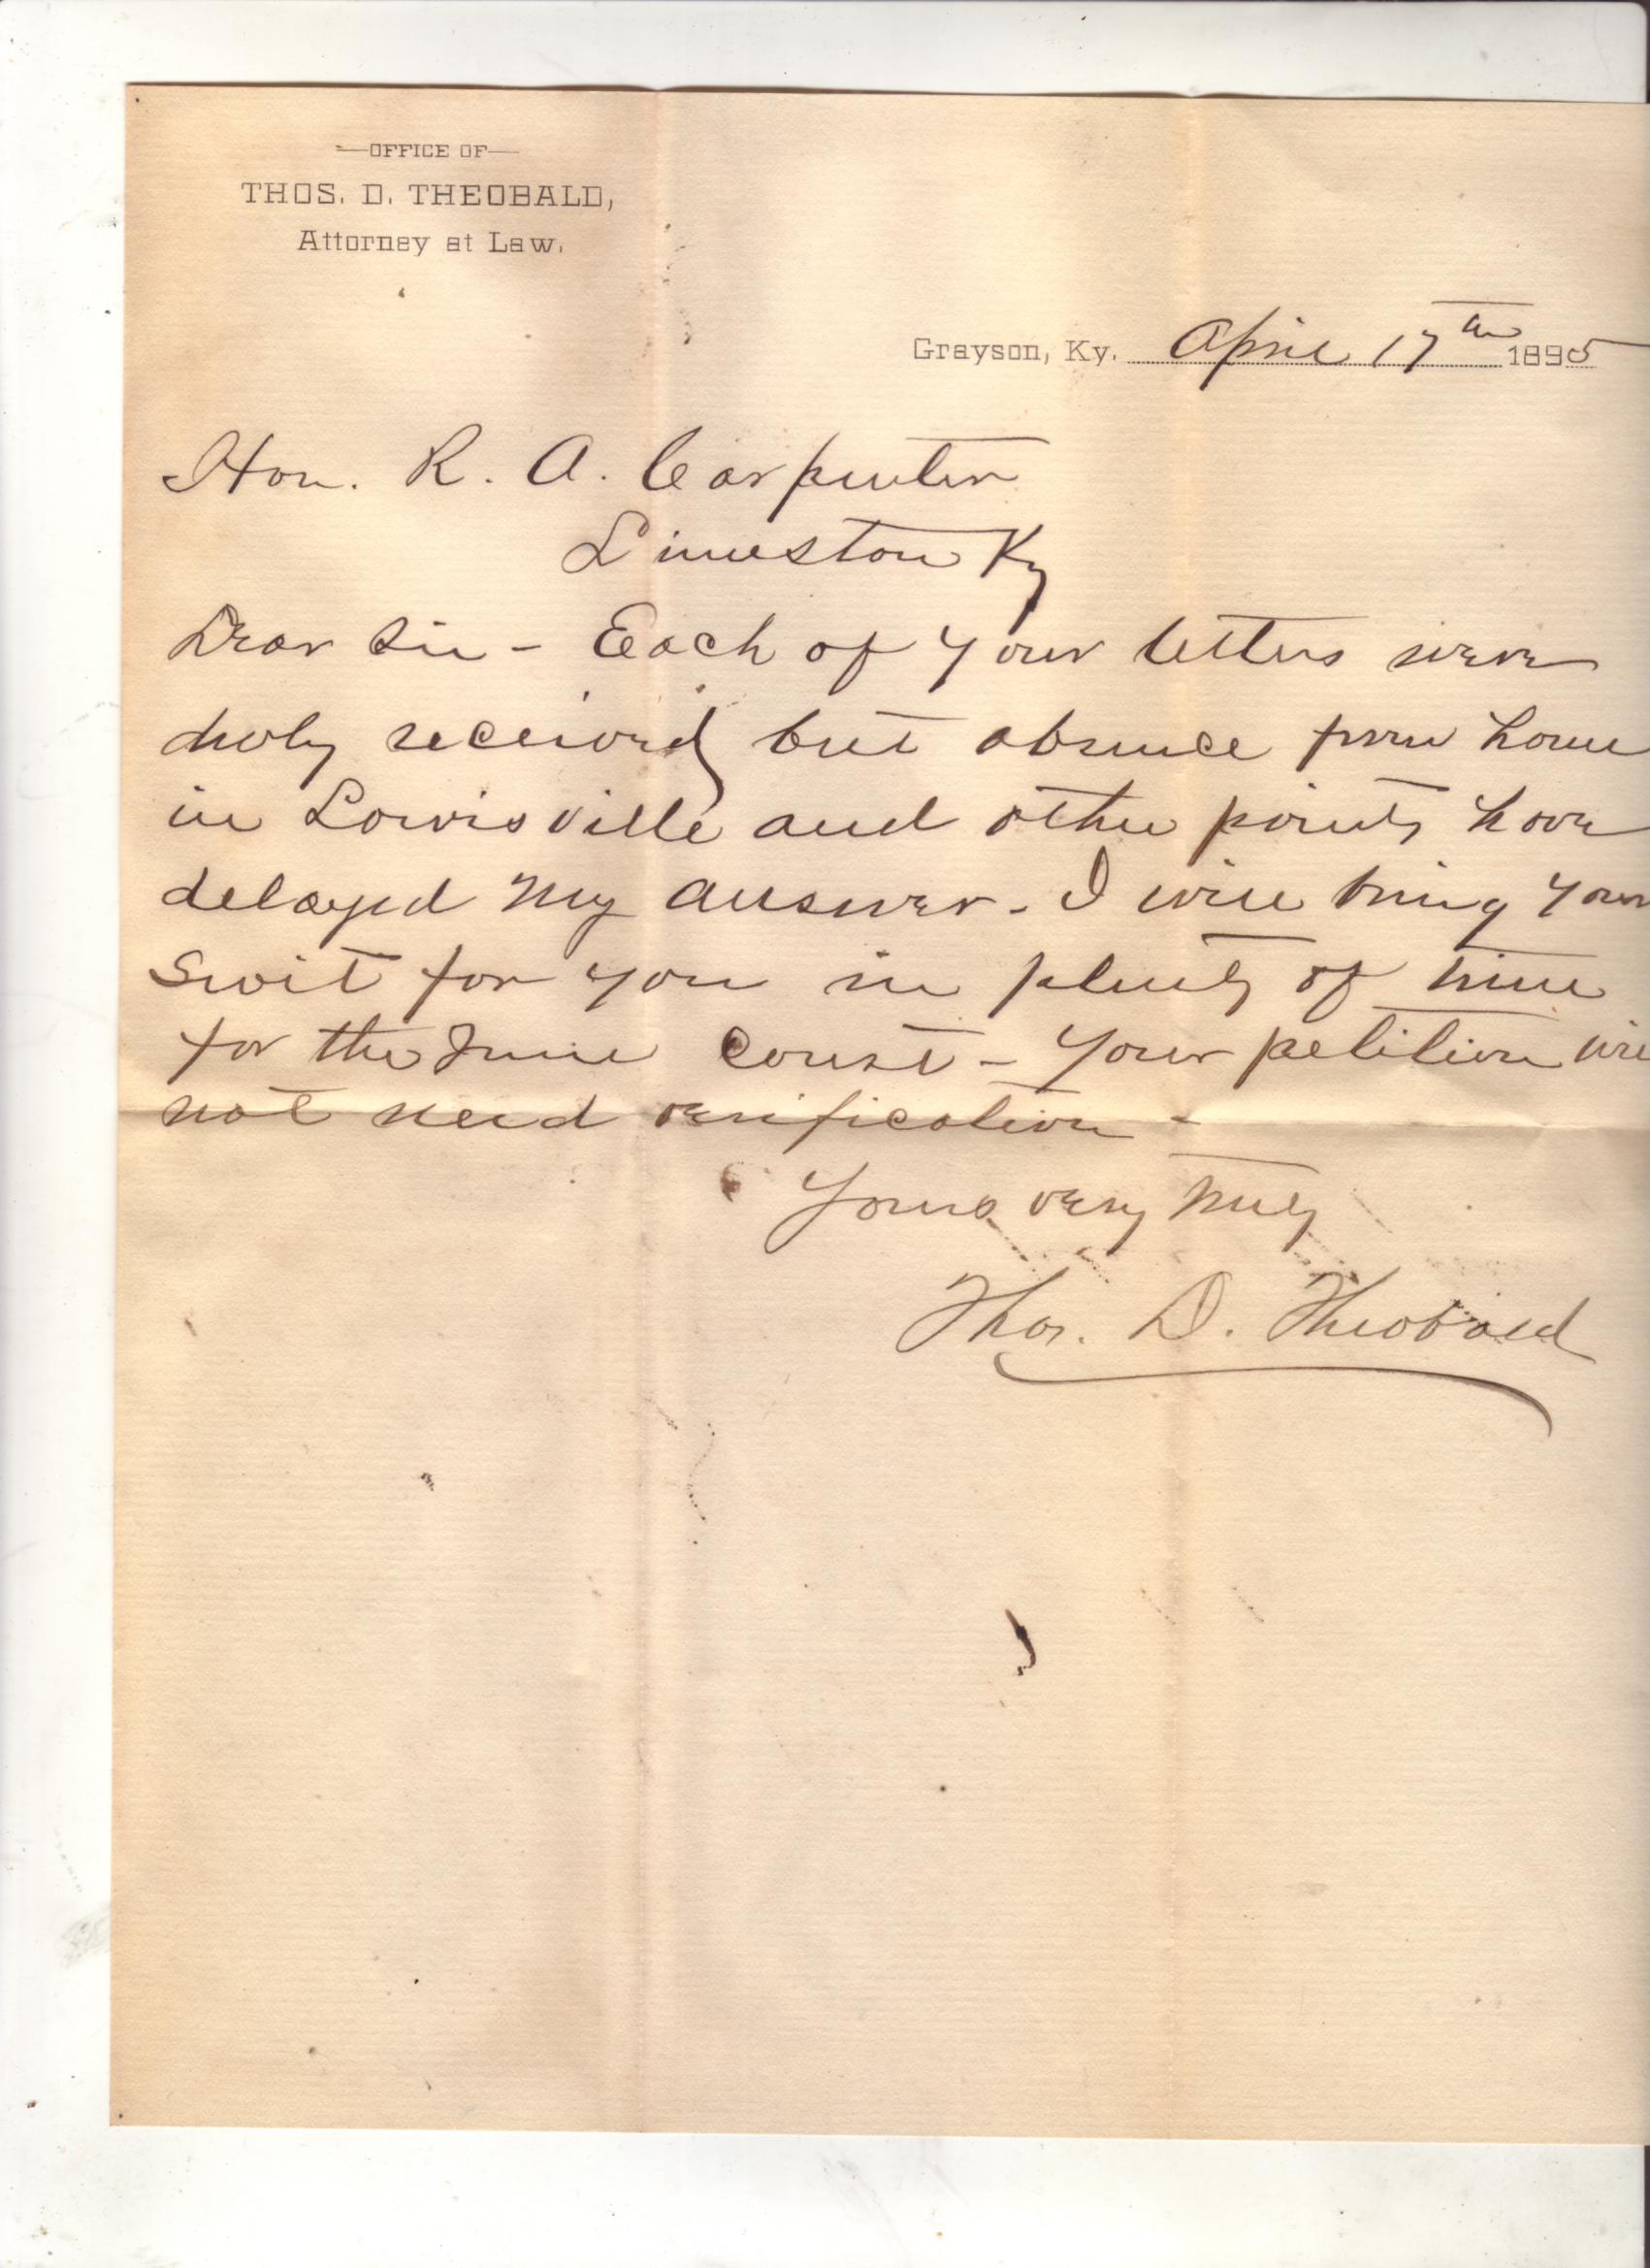 —OFFICE OF—
THOS. D. THEOBALD,
Attorney at Law.
Grayson, Ky. April 17th 1895
Hon. R. A. Carpenter
Limestone Ky
Dear Sir - Each of your letters were
duly received but absence from home
in Louisville and other points have
delayed my answer - I will bring your
suit for you in plenty of time
for the June Court - Your petition will
not need verification -
Yours very truly
Thos. D. Theobald